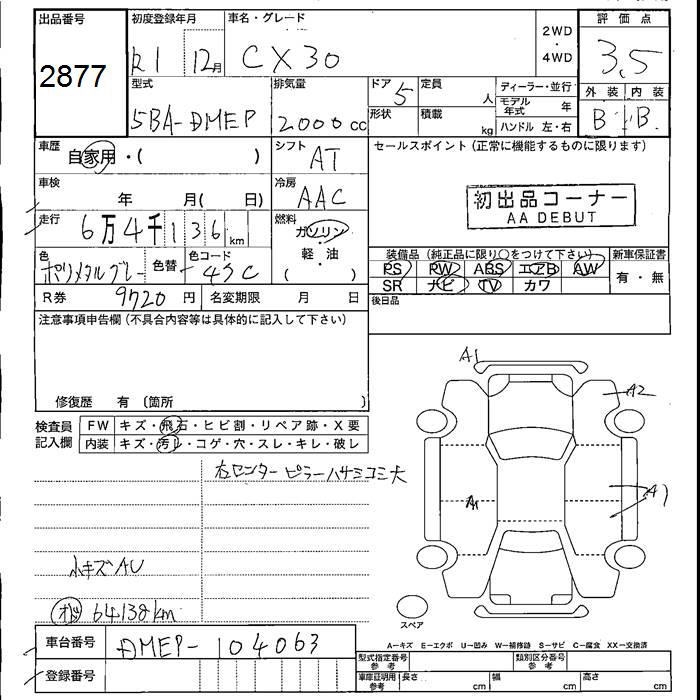 出品番号 初度登録年月 車名・グレード 2WD ・ 4WD 評価点
2877 R1 12月 CX30 3.5
型式 排気量 ドア 定員 ディーラー・並行 外装 内装
5BA-DMEP 2000cc 5 人 モデル年式 年 B B
形状 積載 kg ハンドル 左・右
車歴 自家用・( ) シフト AT セールスポイント(正常に機能するものに限ります)
車検 年 月( 日) 冷房 AAC 初出品コーナー
AA DEBUT
走行 6万4千136km 燃料 ガソリン・軽・油( )
色 ポリメタルグレー 色替 色コード 装備品(純正品に限り○をつけて下さい) 新車保証書
PS PW ABS エアB AW 有・無
SR ナビ TV カワ
R券 9720円 名変期限 月 日 後日品
注意事項申告欄(不具合内容等は具体的に記入して下さい)
修復歴 有 〔箇所 〕
A1
A2
検査員記入欄 FW キズ・飛石・ヒビ割・リペア跡・X要
内装 キズ・汚レ・コゲ・穴・スレ・キレ・破レ
右センターピラーハサミコミ大
A1
A1
小キズAU
64138km
スペア
車台番号 DMEP-104063
A-キズ E-エクボ U-凹み W-補修跡 S-サビ C-腐食 XX-交換済
登録番号 型式指定番号 参考 類別区分番号 参考
車庫証明用 参考 長さ cm 幅 cm 高さ cm